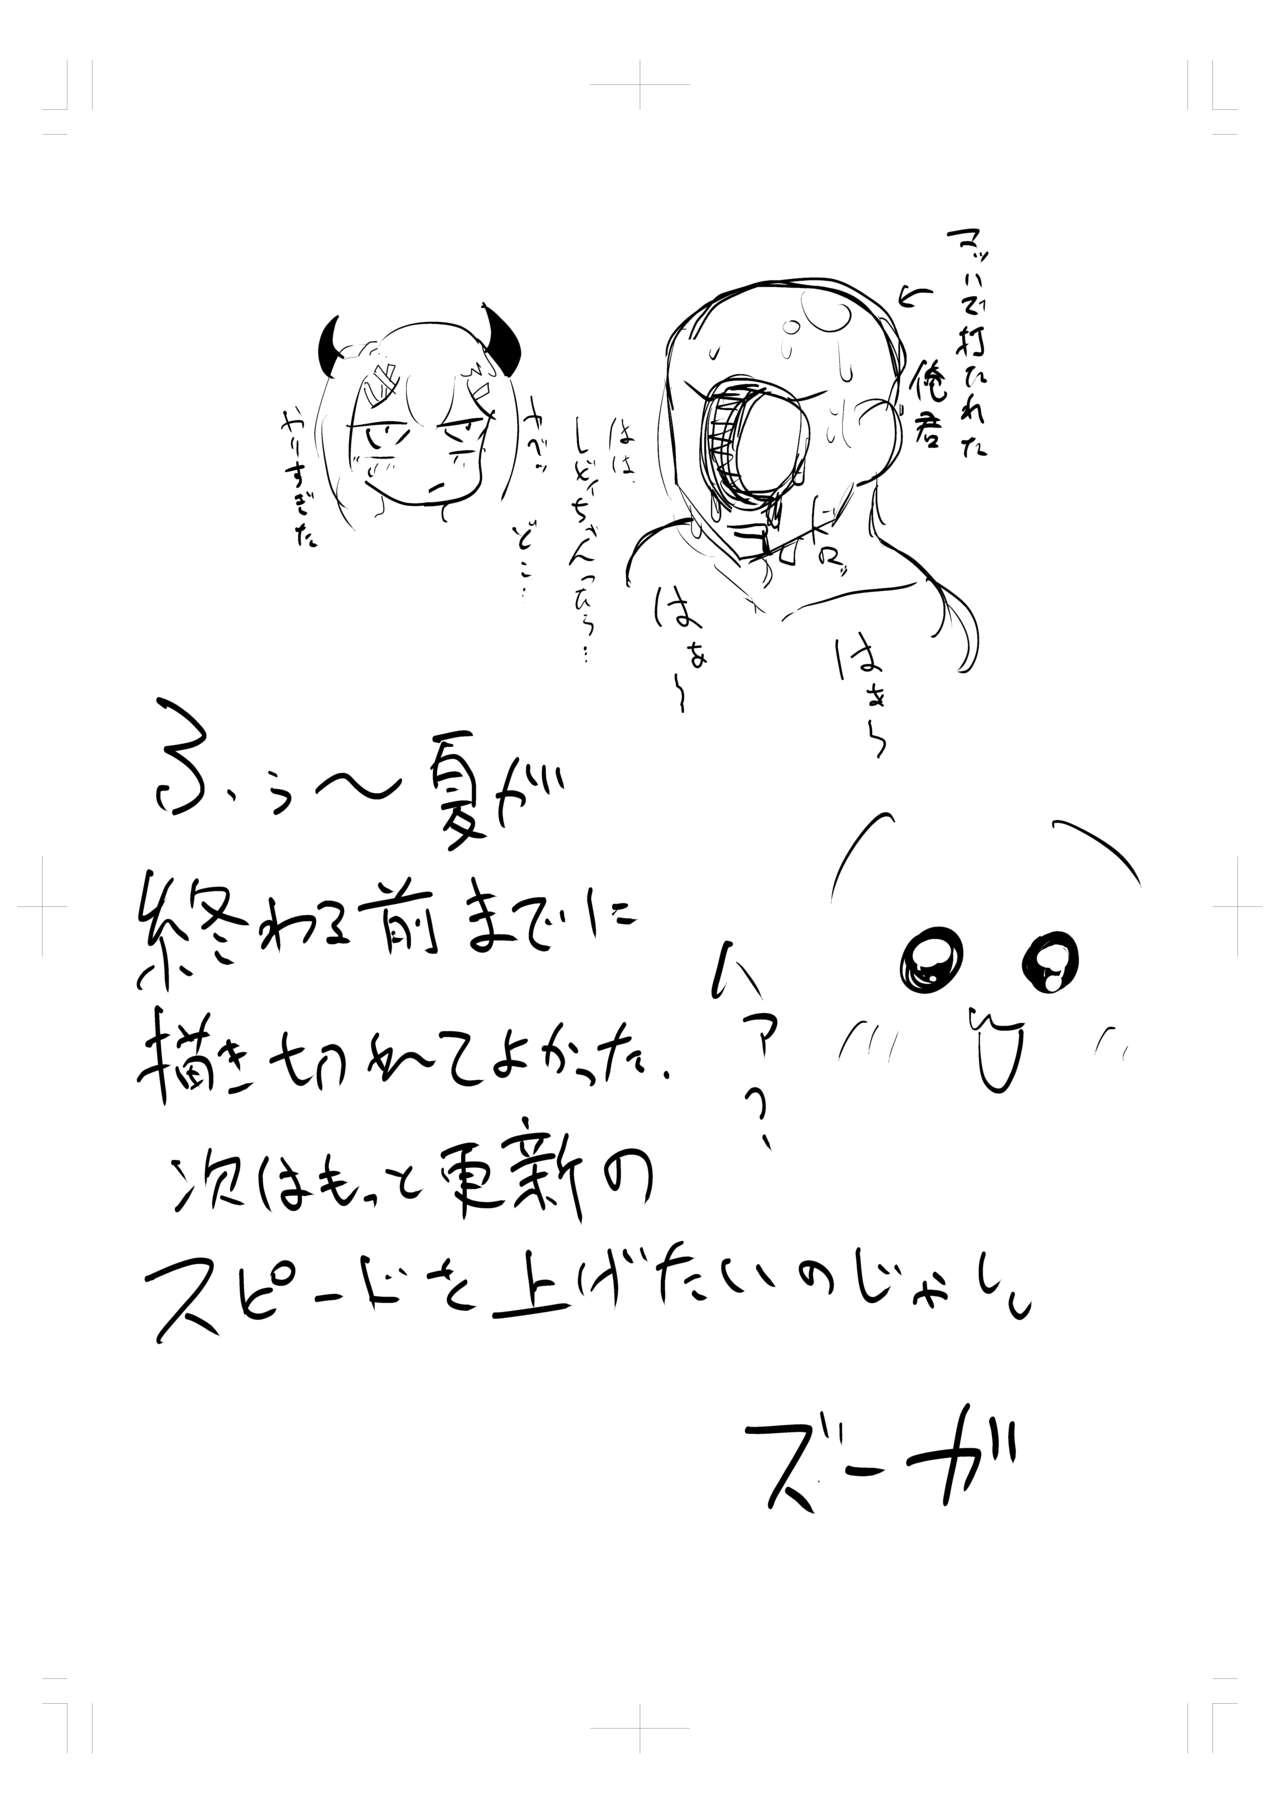 マッハで打たれた
俺君
はは、
しどいちゃんったら…
どこ…
ヤベッ
やりすぎた
ドロッ
はぁ〜
はぁ〜
ふぅ〜夏が
終わる前までに
描き切れてよかった.
次はもっと更新の
スピードを上げたいのじゃし。
ハァっ、
ズーガ